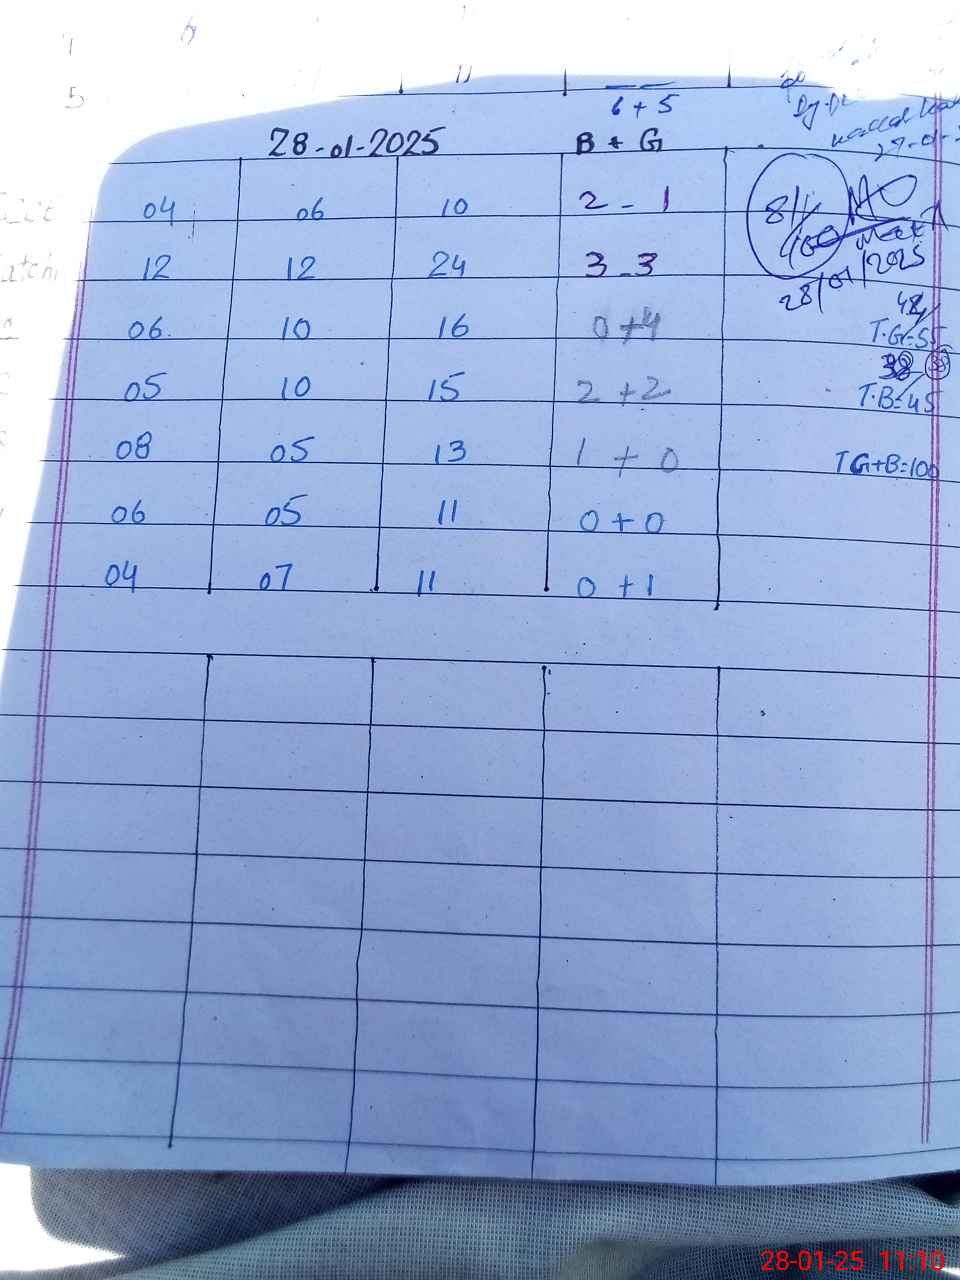 11
5
6 + 5
28-01-2025 B + G
04 06 10 2 - 1
12 12 24 3 - 3
28/01/2025
06 10 16 0 + 4
T.G=55
05 10 15 2 + 2
T.B=45
08 05 13 1 + 0
TG+B=100
06 05 11 0 + 0
04 07 11 0 + 1
28-01-25 11:10